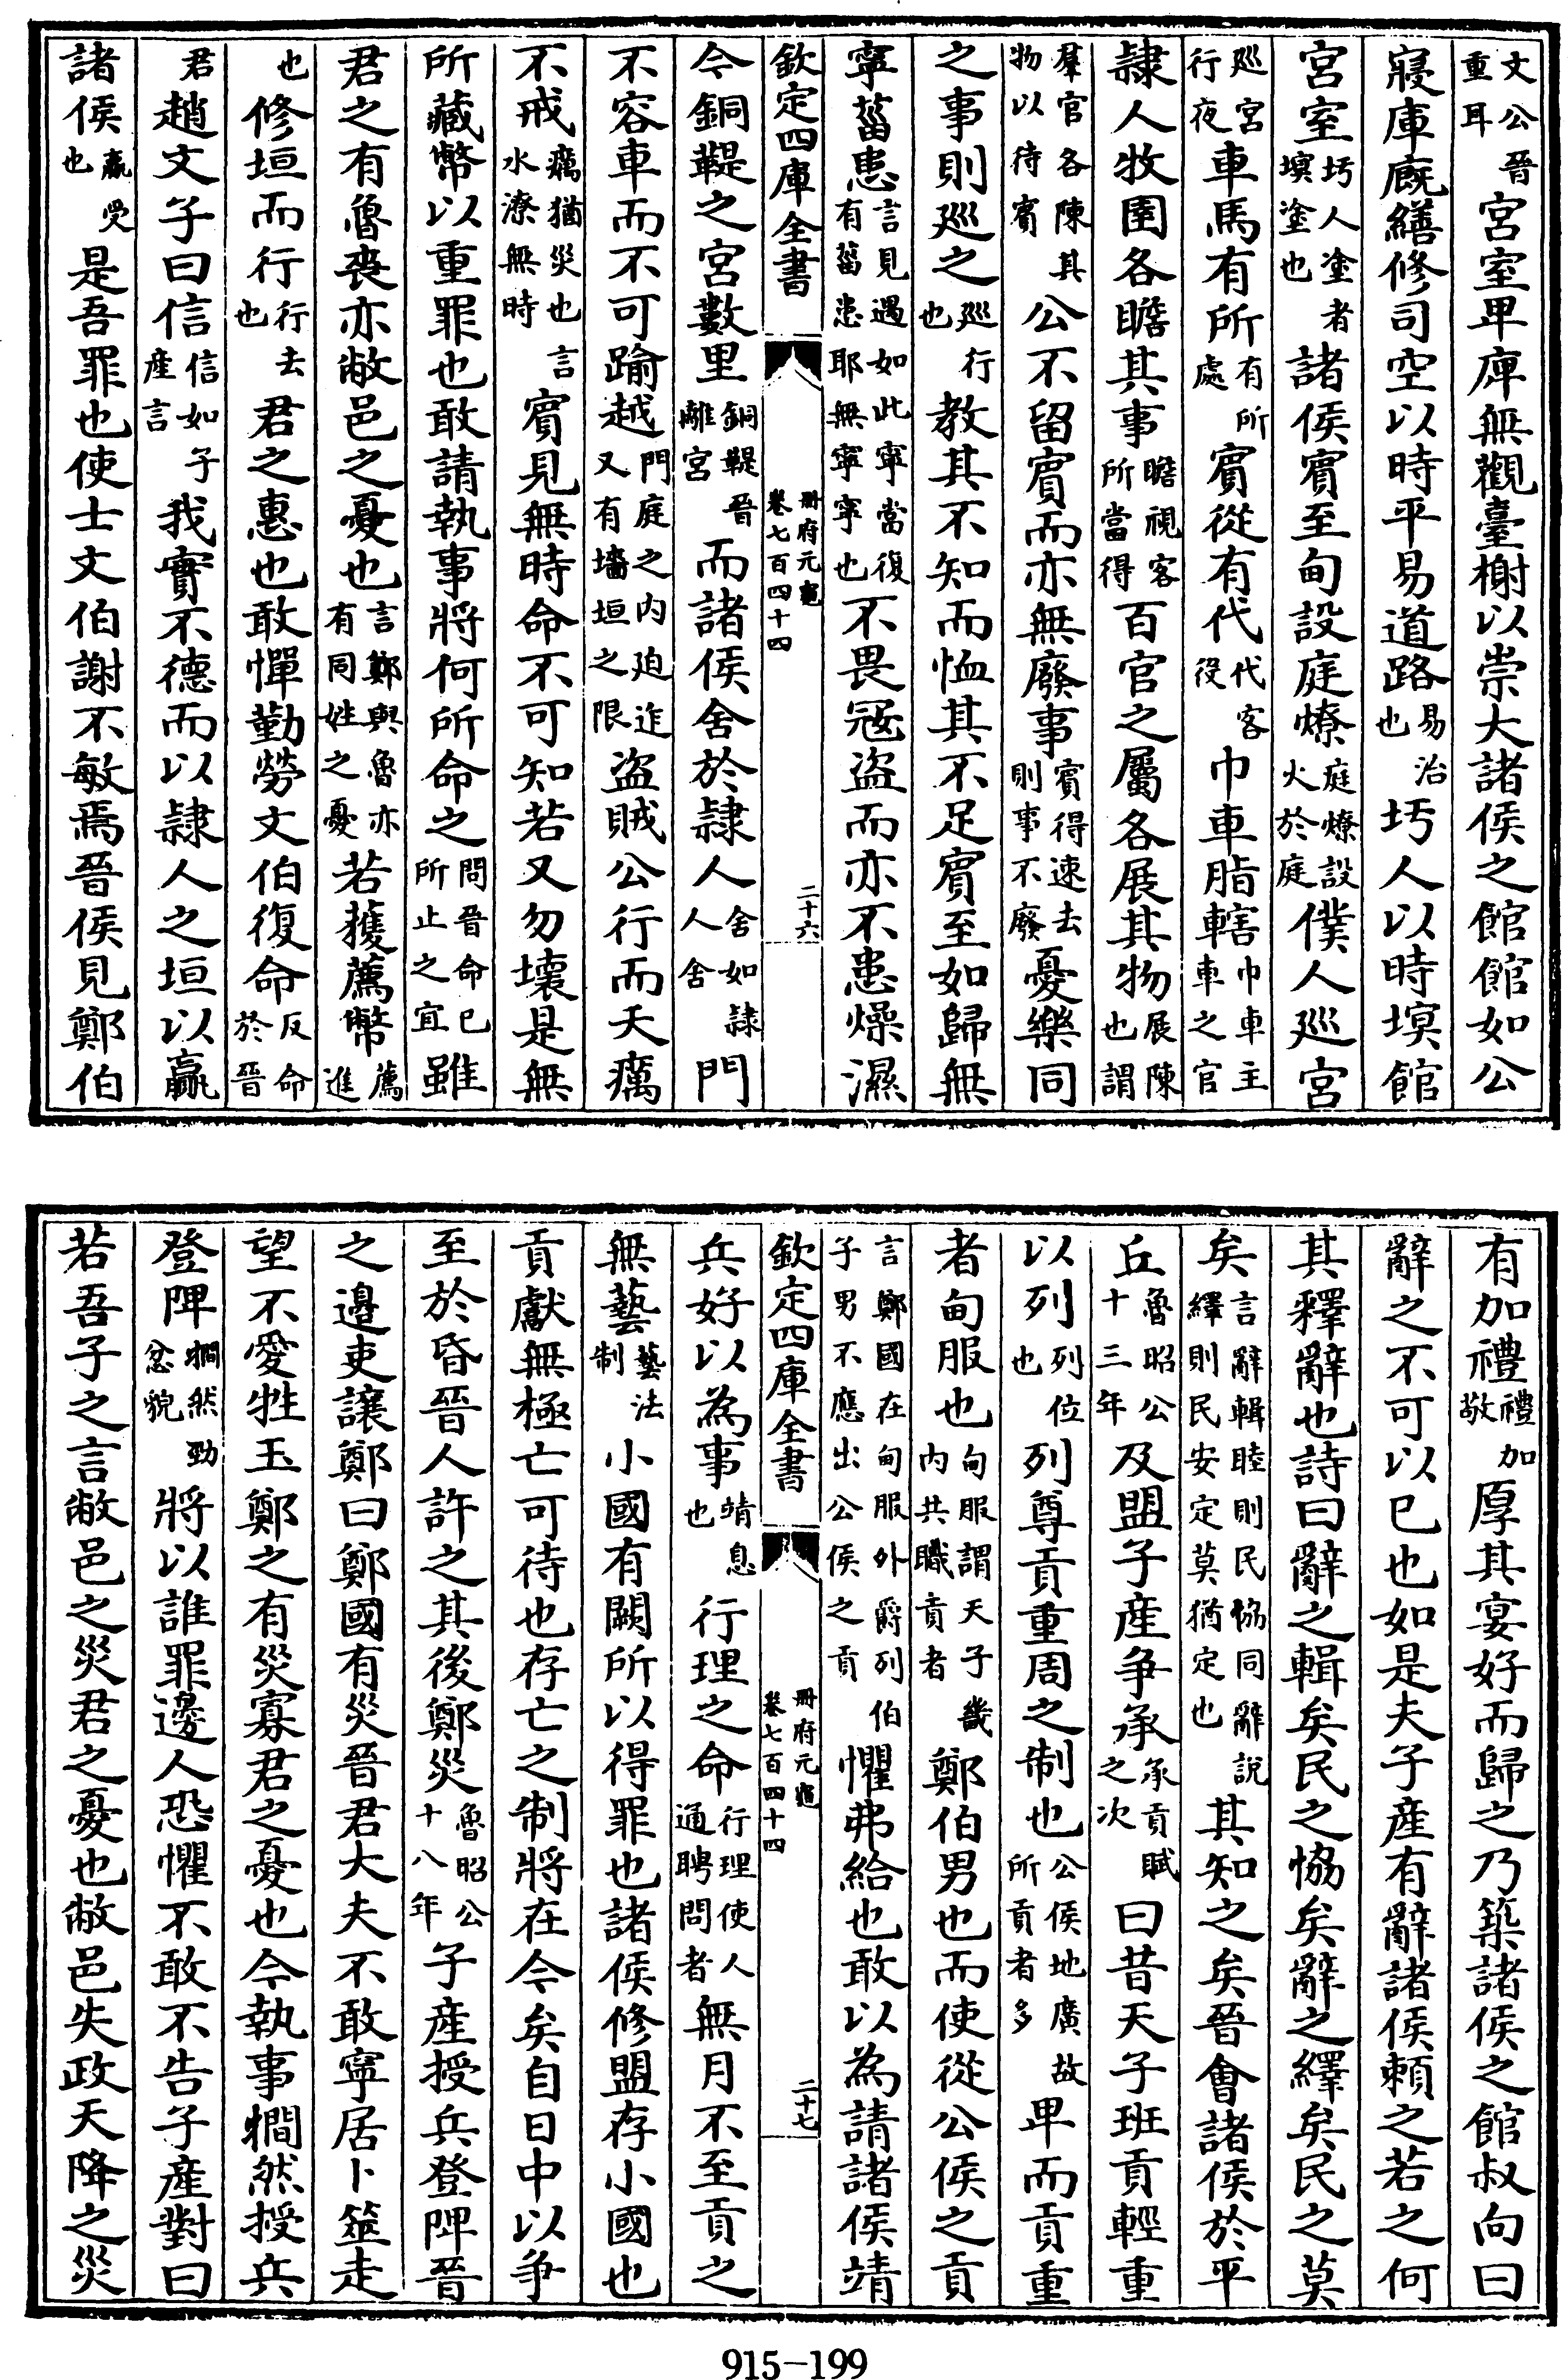 文公晉重耳宮室卑庳無觀臺榭以崇大諸侯之館館如公
寢庫廐繕修司空以時平易道路易治也圬人以時塓館
宮室圬人塗者塓塗也諸侯賓至甸設庭燎庭燎設火於庭僕人巡宮
巡宮行夜車馬有所有所處賓從有代代客役巾車脂轄巾車主車之官
隸人牧圉各瞻其事瞻視客所當得百官之屬各展其物展陳也謂
羣官各陳其物以待賓公不留賓而亦無廢事賓得速去則事不廢憂樂同
之事則巡之巡行也教其不知而恤其不足賓至如歸無
寧菑患言見遇如此寧當復有菑患耶無寧寧也不畏冦盜而亦不患燥濕
欽定四庫全書 冊府元龜卷七百四十四 二十六
今銅鞮之宮數里銅鞮晉離宮而諸侯舍於隸人舍如隸人舍門
不容車而不可踰越門庭之内迫迮又有墻垣之限盜賊公行而天癘
不戒癘猶災也言水潦無時賓見無時命不可知若又勿壞是無
所藏幣以重罪也敢請執事將何所命之問晉命已所止之宜雖
君之有魯喪亦敝邑之憂也言鄭與魯亦有同姓之憂若獲薦幣薦進
也修垣而行行去也君之惠也敢憚勤勞文伯復命反命於晉
君趙文子曰信信如子產言我實不德而以隸人之垣以贏
諸侯贏受也是吾罪也使士文伯謝不敏焉晉侯見鄭伯
有加禮禮加敬厚其宴好而歸之乃築諸侯之館叔向曰
辭之不可以已也如是夫子產有辭諸侯頼之若之何
其釋辭也詩曰辭之輯矣民之恊矣辭之繹矣民之莫
矣言辭輯睦則民恊同辭說繹則民安定莫猶定也其知之矣晉會諸侯於平
丘魯昭公十三年及盟子產争承承貢賦之次曰昔天子班貢輕重
以列列位也列尊貢重周之制也公侯地廣故所貢者多卑而貢重
者甸服也甸服謂天子畿内共職貢者鄭伯男也而使從公侯之貢
言鄭國在甸服外爵列伯子男不應出公侯之貢懼弗給也敢以為請諸侯靖
欽定四庫全書 冊府元龜卷七百四十四 二十七
兵好以為事靖息也行理之命行理使人通聘問者無月不至貢之
無藝藝法制小國有闕所以得罪也諸侯修盟存小國也
貢獻無極亡可待也存亡之制將在今矣自日中以争
至於昏晉人許之其後鄭災魯昭公十八年子產授兵登陴晉
之邉吏讓鄭曰鄭國有災晉君大夫不敢寧居卜筮走
望不愛牲玉鄭之有災寡君之憂也今執事撊然授兵
登陴撊然勁忿貌將以誰罪邊人恐懼不敢不告子產對曰
若吾子之言敝邑之災君之憂也敝邑失政天降之災
915-199